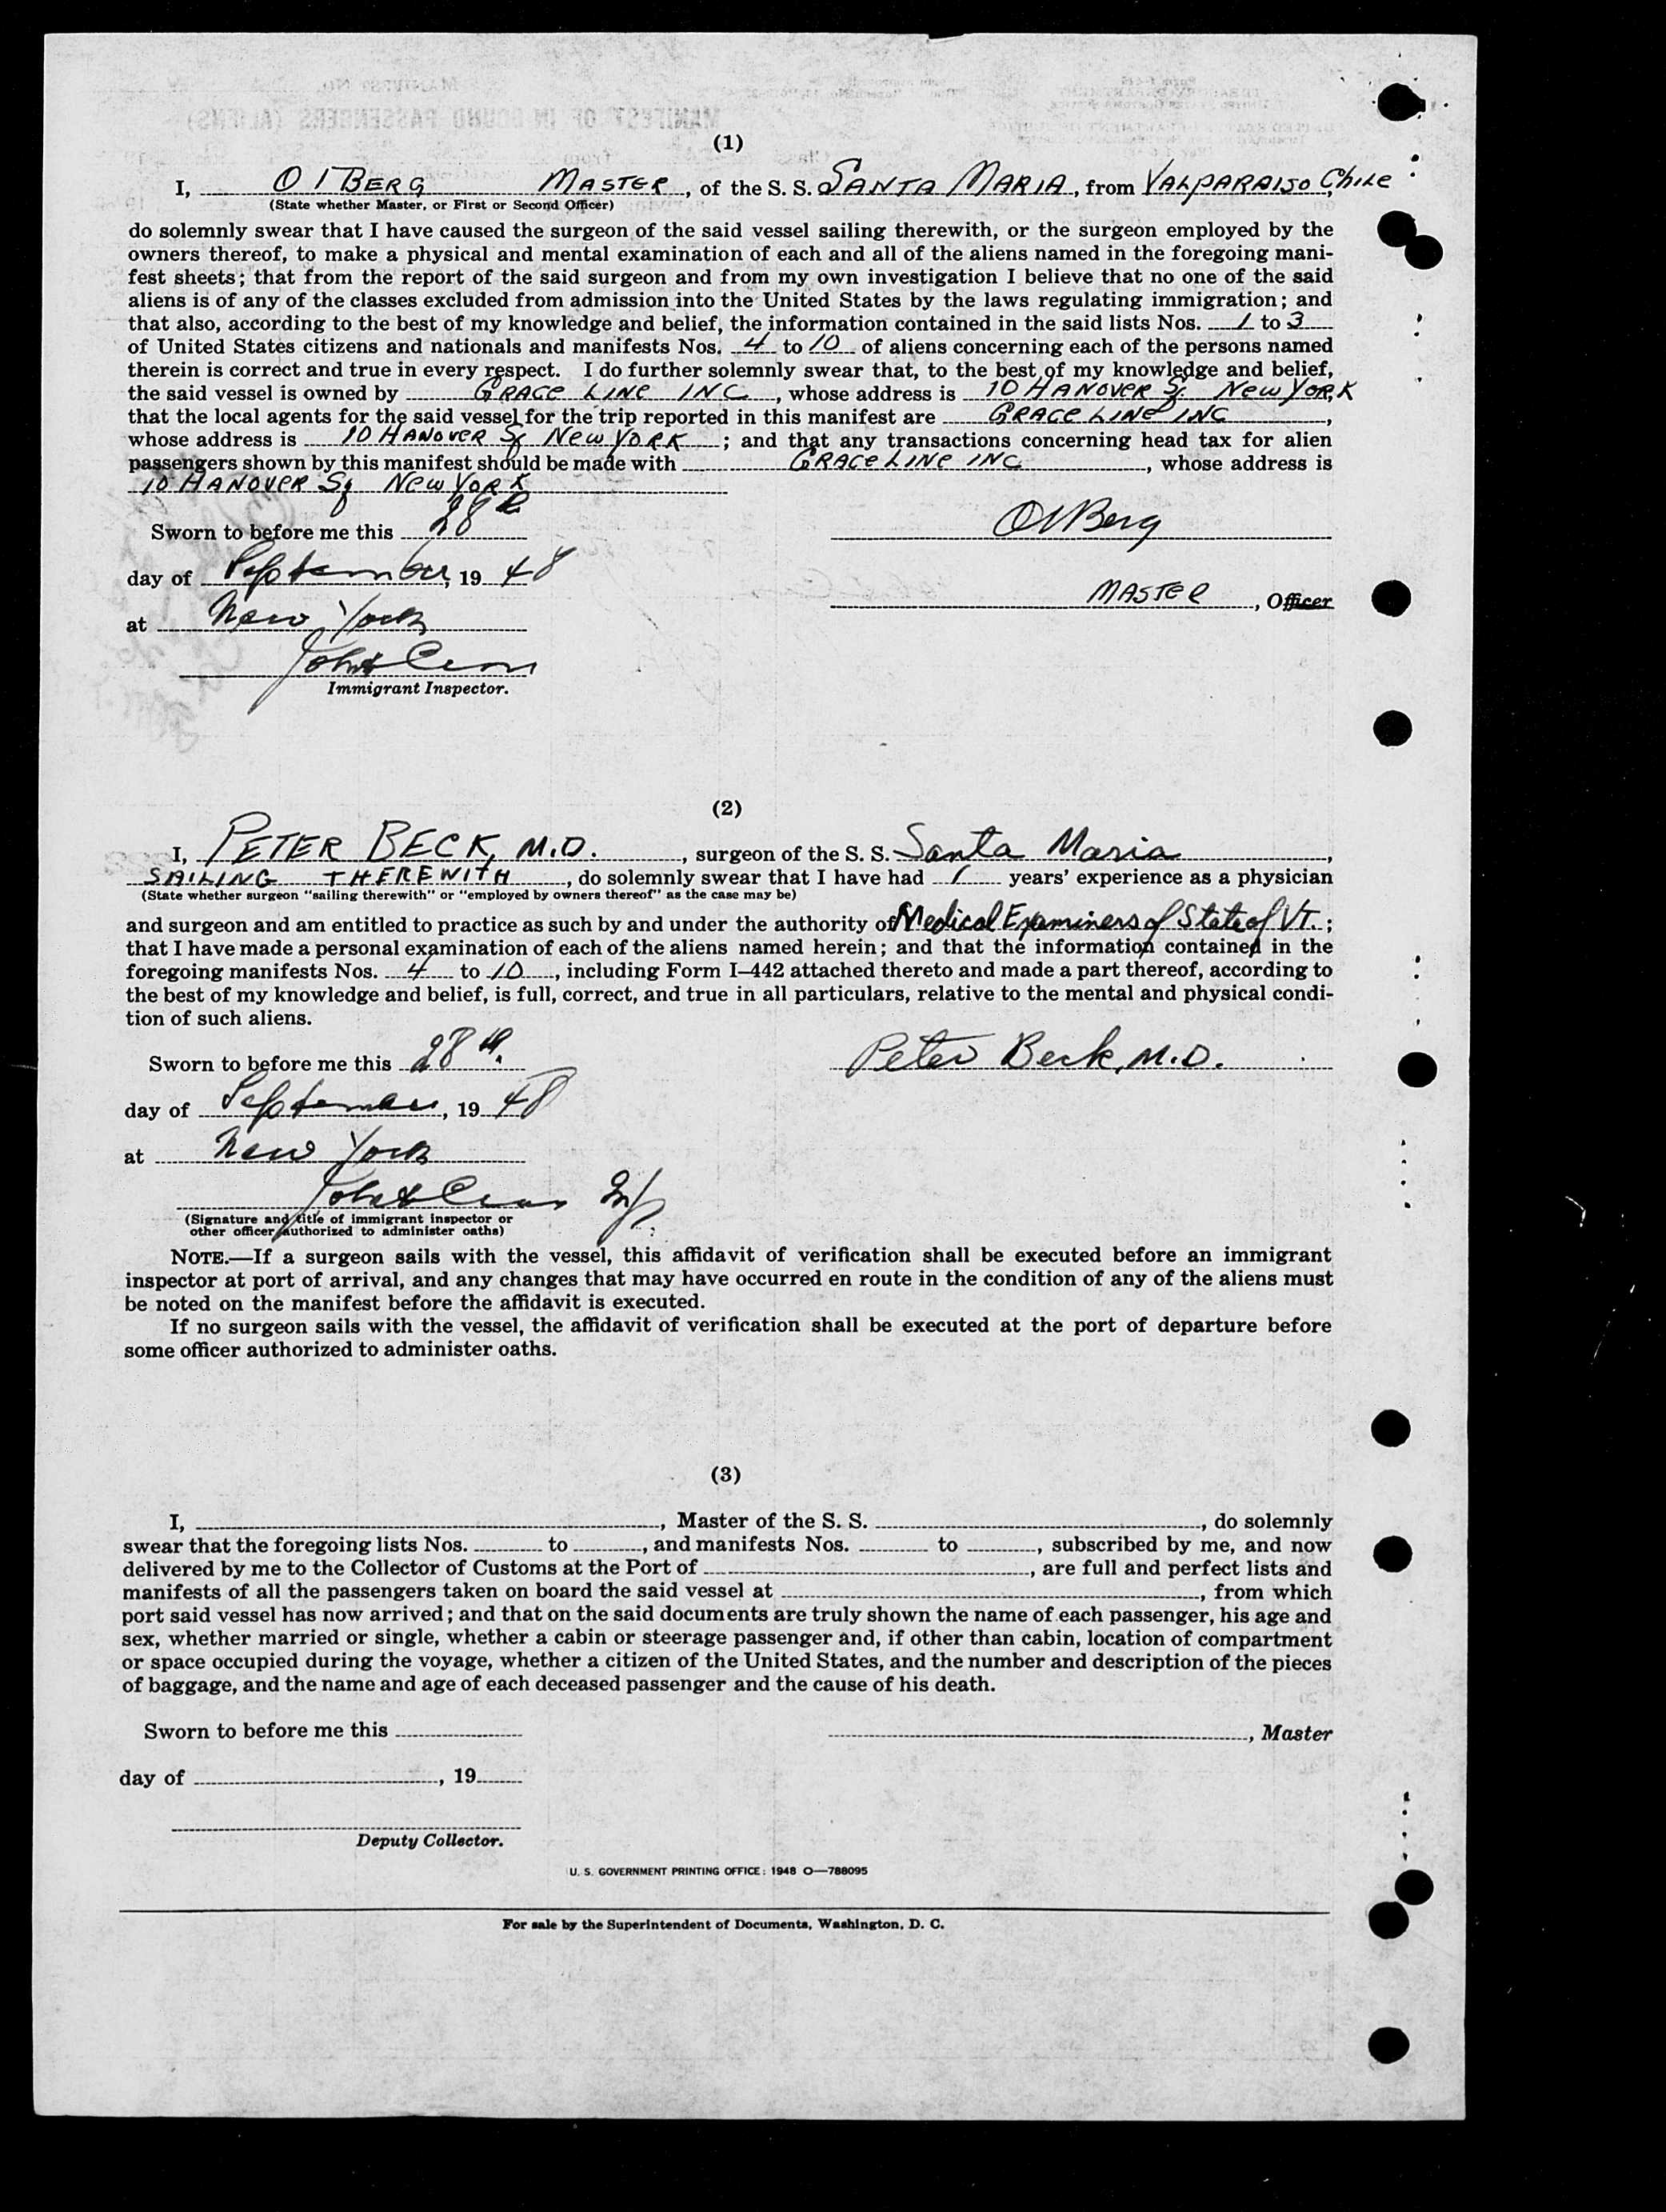 (1)
I, O I BERG MASTER, of the S. S. SANTA MARIA, from VALPARAISO, Chile
(State whether Master, or First or Second Officer)
do solemnly swear that I have caused the surgeon of the said vessel sailing therewith, or the surgeon employed by the
owners thereof, to make a physical and mental examination of each and all of the aliens named in the foregoing mani-
fest sheets; that from the report of the said surgeon and from my own investigation I believe that no one of the said
aliens is of any of the classes excluded from admission into the United States by the laws regulating immigration; and
that also, according to the best of my knowledge and belief, the information contained in the said lists Nos. 1 to 3
of United States citizens and nationals and manifests Nos. 4 to 10 of aliens concerning each of the persons named
therein is correct and true in every respect. I do further solemnly swear that, to the best of my knowledge and belief,
the said vessel is owned by GRACE LINE INC, whose address is 10 HANOVER Sq. New YORK,
that the local agents for the said vessel for the trip reported in this manifest are GRACE LINE INC,
whose address is 10 HANOVER Sq New YORK; and that any transactions concerning head tax for alien
passengers shown by this manifest should be made with GRACE LINE INC, whose address is
10 HANOVER Sq New YORK
Sworn to before me this 28th
OIBerg
day of September, 19 48
MASTER, Officer
at New York
Immigrant Inspector.
(2)
I, PETER BECK, M.D., surgeon of the S. S. Santa Maria,
SAILING THEREWITH, do solemnly swear that I have had 1 years' experience as a physician
(State whether surgeon "sailing therewith" or "employed by owners thereof" as the case may be)
and surgeon and am entitled to practice as such by and under the authority of Medical Examiners of State of VT.;
that I have made a personal examination of each of the aliens named herein; and that the information contained in the
foregoing manifests Nos. 4 to 10, including Form I–442 attached thereto and made a part thereof, according to
the best of my knowledge and belief, is full, correct, and true in all particulars, relative to the mental and physical condi-
tion of such aliens.
Sworn to before me this 28th.
Peter Beck, M.D.
day of September, 19 48
at New York
(Signature and title of immigrant inspector or
other officer authorized to administer oaths)
NOTE.—If a surgeon sails with the vessel, this affidavit of verification shall be executed before an immigrant
inspector at port of arrival, and any changes that may have occurred en route in the condition of any of the aliens must
be noted on the manifest before the affidavit is executed.
If no surgeon sails with the vessel, the affidavit of verification shall be executed at the port of departure before
some officer authorized to administer oaths.
(3)
I, , Master of the S. S. , do solemnly
swear that the foregoing lists Nos. to , and manifests Nos. to , subscribed by me, and now
delivered by me to the Collector of Customs at the Port of , are full and perfect lists and
manifests of all the passengers taken on board the said vessel at , from which
port said vessel has now arrived; and that on the said documents are truly shown the name of each passenger, his age and
sex, whether married or single, whether a cabin or steerage passenger and, if other than cabin, location of compartment
or space occupied during the voyage, whether a citizen of the United States, and the number and description of the pieces
of baggage, and the name and age of each deceased passenger and the cause of his death.
Sworn to before me this
, Master
day of , 19
Deputy Collector.
U. S. GOVERNMENT PRINTING OFFICE: 1948 O—788095
For sale by the Superintendent of Documents, Washington, D. C.